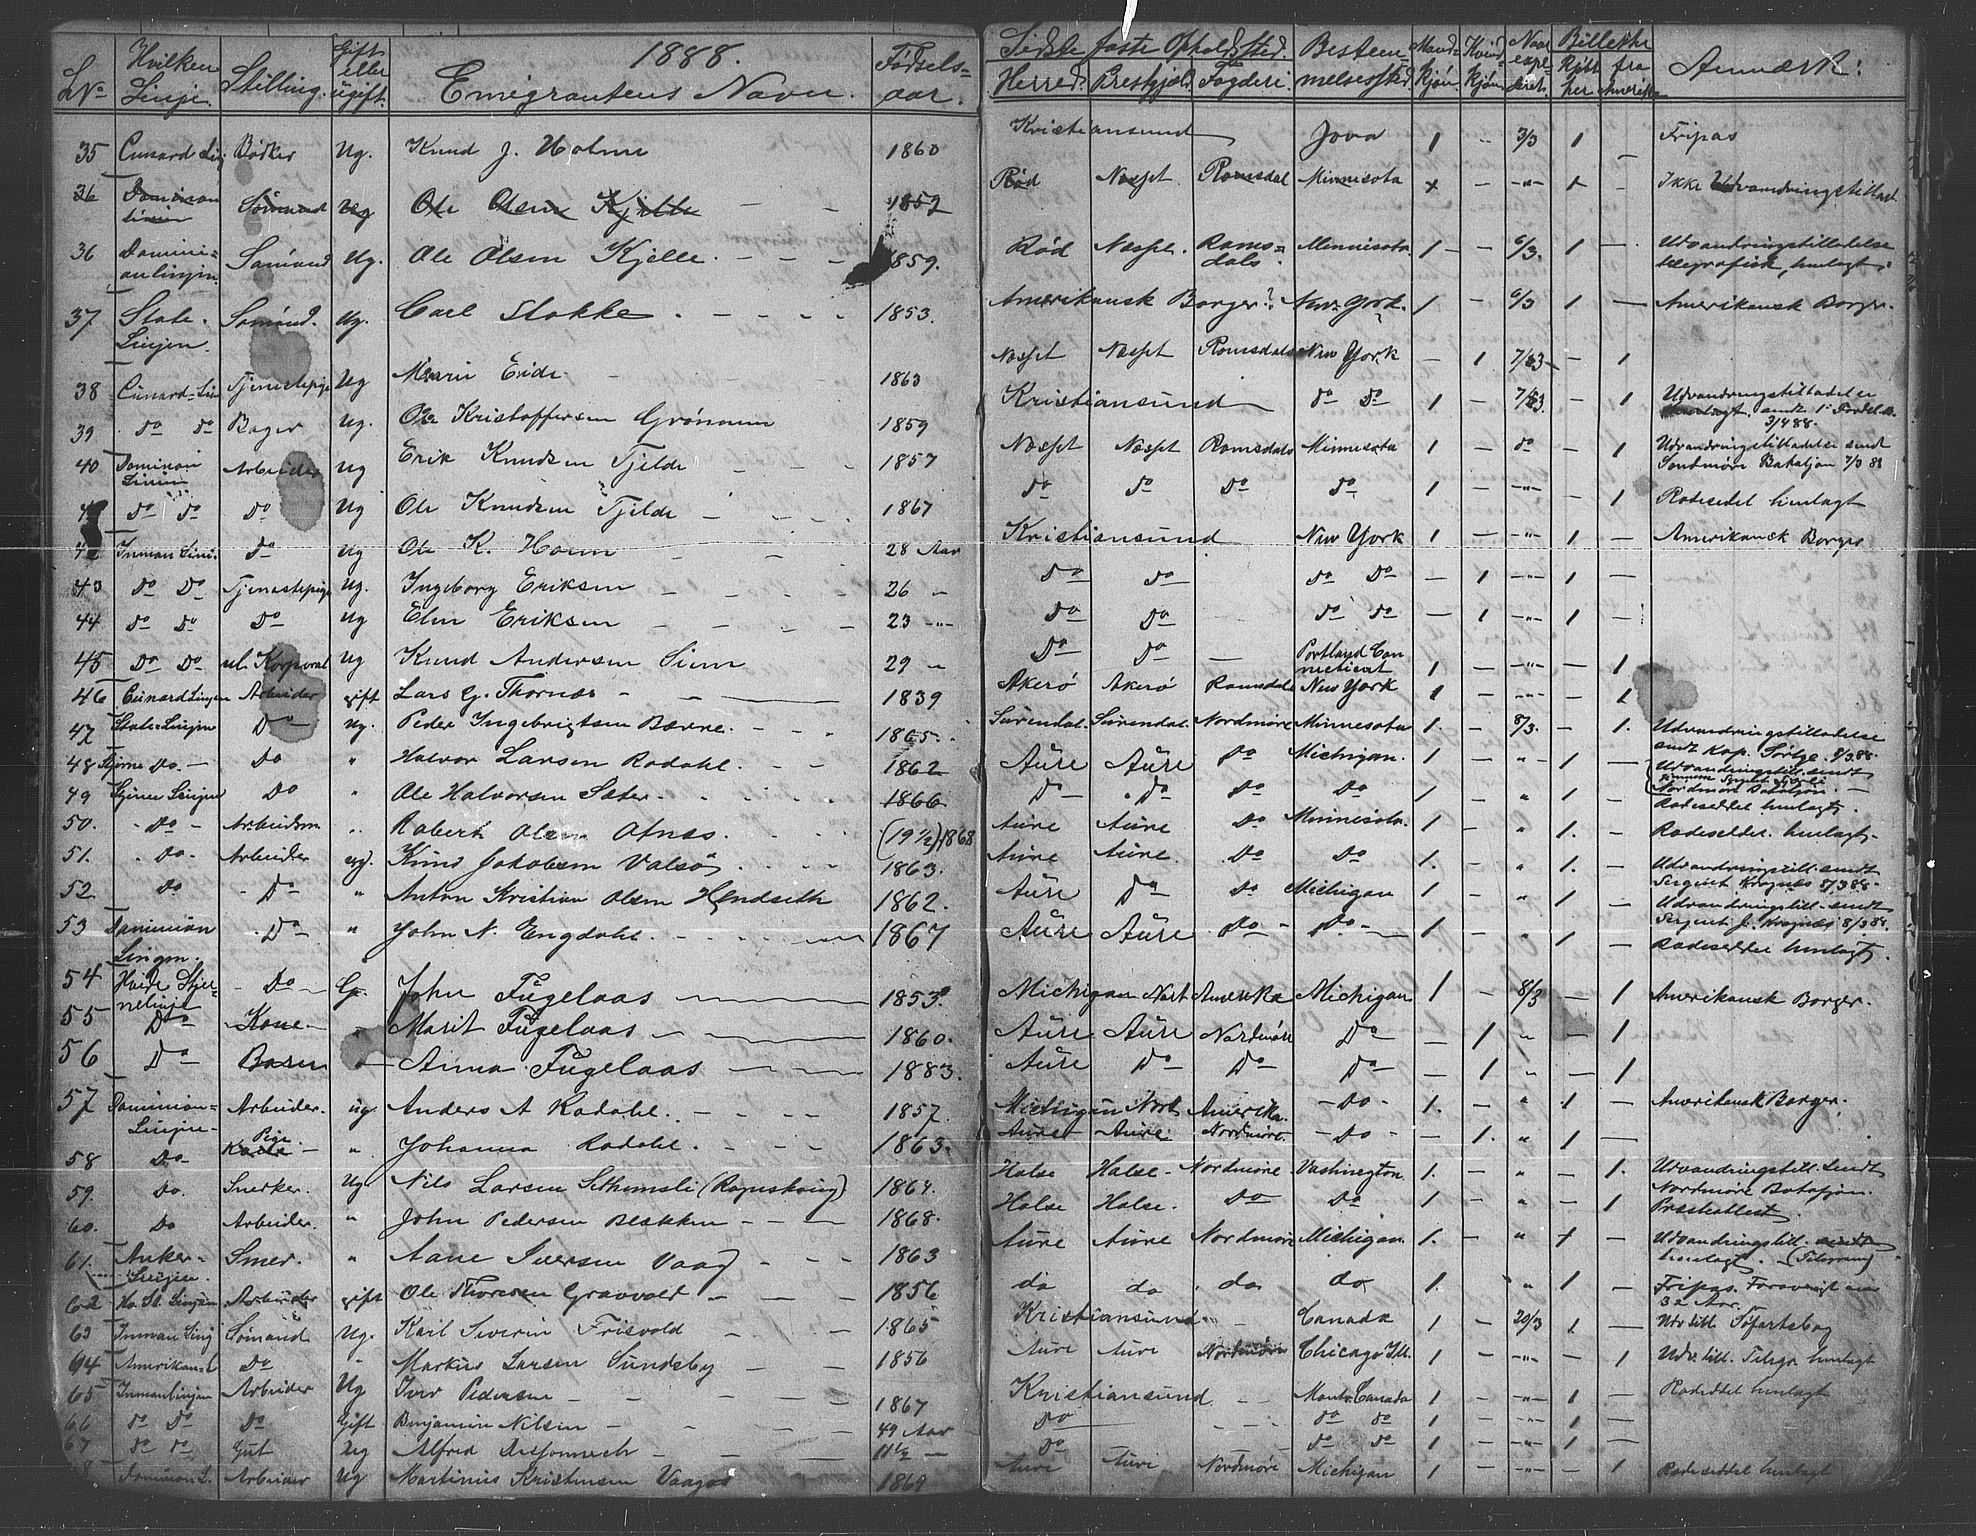 1888.
Lno Hvilken Linje. Stilling. Gift eller ugift. Emigrantens Navn. Fødsels-aar. Sidste faste Opholdssted. Herred. Prestgjæld. Fogderi. Bestemmelsessted. Mandkjøn Kvindkjøn Naar expederet. Billetter kjøbt her fra Amerika Anmærk:
35 Cunard Linj Bødker Ug. Knud J. Holm 1860 Kristiansund Jova 1 " 3/3 1 — Fripas
36 Dominion Linien Sømand Ug Ole Olsen Kjelle — — 1859 Rød Nespt. Romsdal Minnesota x — -"- x - Ikke Udvandringstillad.
36 Domini=onlinjen Sømand Ug. Ole Olsen Kjelle. - - - 1859. Rød Nespt. Roms=dals. Minnesota. 1 — 6/3. 1 — Udvandringstilladelse telegrafisk, henlagt.
37 State-Linjen Sømand. Ug. Carl Stokke. - - - - 1853. Amerikansk Borger? New York. 1 - 6/3 1 — Amerikansk Borger.
38 Cunard=Lin Tjenestepige Ug Marie Eide - - - 1863 Nespt Nespt Romsdals New York — 1 7/3 — 1
39 do do Bager Ug. Ole Kristoffersen Grønnun 1859 Kristiansund do do 1 — 7/3 — 1 Udvandringstilladel er henlagt sendt 3/4 88.
40 Dominion Linien Arbeider Ug Erik Knudsen Tjelde - - - 1857 Nespt Nespt Romsdals Minnesota 1 — do — 1 Udvandringstilladelse sendt Søndmøre Bataljon 7/3 88
do do do Ug Ole Knudsen Tjelde - - - 1867 do do do do 1 — -"- — 1 Rodesedel henlagt
42 Inman Lini. do Ug Ole K. Horm - - 28 Aar Kristiansund New York 1 — " 1 — Amerikansk Borger
43 do do Tjenestepige Ug. Ingeborg Eriksen - - - 26 " do do do do — 1 -"- 1 —
44 do do do Ug Elen Eriksen - - - 23 -"- do do do do — 1 -"- 1 —
45 do do ul. Korporal Ug Knud Andersen Siem 29 " do do — Portland Connecticut 1 — -"- — 1
46 Cunard Linjen Arbeider gift Lars G. Thornæs - - — 1839 Akerø Akerø Romsdals New York 1 — -"- 1
47 State=Linjen Do ug. Peder Ingebrigtsen Bævre. - - . 1865. Surendal. Surendal. Nordmøre Minnesota 1. - 8/3. - 1. Udvandringstilladelse sendt Kap. Sørge. 8/3 88.
48 Stjerne do. - Do " Halvor Larsen Rodahl. - - . 1862 Aure Aure Do Michigan. 1 - " 1 — Udvandringstill. sendt Nordmøre Bataljon.
49 Stjerne Linjen Do " Ole Halvorsen Sæter. . . . . 1866. Do Do Do Do 1 - " 1 — Rodeseddel henlagt.
50. - Do - Arbeidsm " Robert Olsen Ofnæs. . . . (19 1/2) 1868 Aure Aure Do Minnesota. 1 - " 1. - Rodeseddel. henlagt.
51. - Do- Arbeider ug. Knud Jakobsen Valsø . . . 1863. Aure Aure. Do Do 1. - " 1. - Udvandringstill. sendt Sergent Kragnæs 8/3 88.
52. Do - Do " Anton Kristian Olsen Hendseth 1862. Aure Do Do Michigan 1 - " 1 — Udvandringstill. sendt Sergent J. Kragnæs 8/3 88.
53 Dominion Linjen. - Do- " John N. Engdahl. - . . 1867 Aure Aure Do - - Do - 1 - " 1 — Rodeseddel henlagt.
54 Hvide Stjer-nelinje - Do - G. John Fugelaas — 1853. Michigan Nort Amerika Michigan 1 - 8/3 — 1 Amerikansk Borger.
55 Do Kone - " Marit Fugelaas — 1860. Aure Aure Nordmøre Do - 1 " — 1
56 Do Barn — Anna Fugelaas — 1883. Aure Do Do Do - 1 " — 1
57 Dominion=Linjen- Arbeider. ug. Anders A Rodahl. - - - - 1857. Michigan Nort Amerika. - Do - 1. - " 1 — Amerikansk Borger.
58 Do Pige - " Johanna Rodahl. - - - 1863. Aure Aure Nordmøre. - Do - - 1. " 1 —
59. Do. Snerker. Ug Nils Larsen Sethemsli (Rognskoug) 1864. Halse Halse- Nordmøre. Vashington. 1. - " - 1. Udvandringstill. Sendt Nordmøre Batafjon.
60. Do Arbeider. " John Pedersen Blekken - - — 1868. Halse Halse. Do Do 1 - " - 1 Præsteattest.
61. Anker-Linjen. Smed. " Aane Iversen Vaag - - - 1863 Aure Aure Nordmøre Michigan. 1. - " 1 - Udvandringstill. sendt henlagt.
62 Hv. St. Linjen Arbeider gift Ole Thoresen Gravvold - - - 1856 do do do do 1. " 1 - Fripas. Foraversigt. 32 Aar.
63 Inman Linj Sømand Ug. Karl Severin Frisvold — - 1865 Kristiansund - Canada 1 - 20/3 1 — Udv. till. Søfartsbog
64 Amerikan=L Do " Markus Larsen Sundsby — — 1856 Aure Aure Nordmøre Chicago Ill. 1 - -"- — 1 Udv. till. Telegr. henlagt
65 Inmanlinjen Arbeider Ug Iver Pedersen — - - - 1867 Kristiansund - - Mont. Canada 1 - -"- 1 — Rodeseddel henlagt
66 do do do Gift Benjamin Nilsen — - - - 49 Aar do - - do do 1 - -"- 1 —
67 do do Gut Ug Alfred — - - 11 1/2 — do do do 1 - -"- 1 —
Dominion L. Arbeider Ug Martinus Kristensen Vaagos 1869 Aure Aure Nordmøre Michigan 1 - -"- — 1 Rodeseddel henlagt